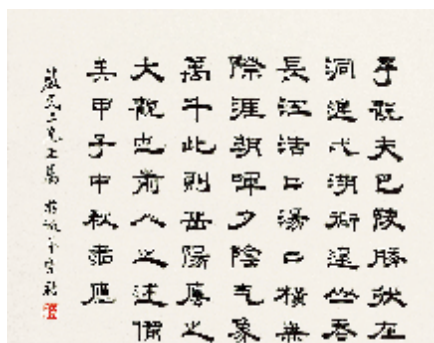 予觀夫巴陵勝狀在
洞庭弌湖銜遠山吞
長江浩〻湯〻橫無
際涯朝暉夕陰气象
萬千此則岳陽樓之
大觀也前人之述備
矣甲子中秋應